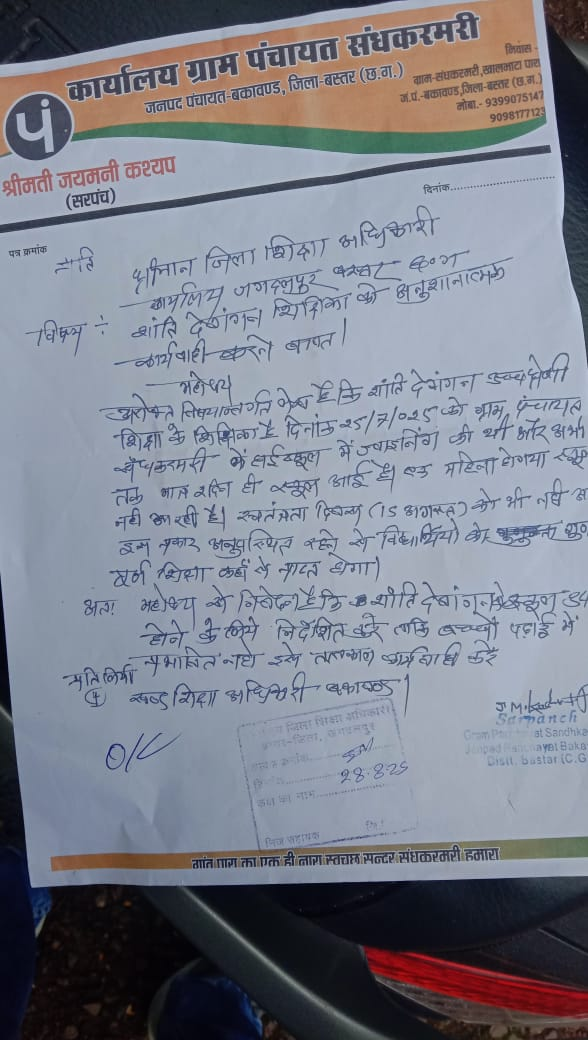 कार्यालय ग्राम पंचायत संधकरमरी
जनपद पंचायत-बकावण्ड, जिला-बस्तर (छ.ग.)
निवास -
ग्राम-संधकरमरी, खालपारा पारा
ज.पं.-बकावण्ड, जिला-बस्तर (छ.ग.)
मोबा.- 9399075147
9098177123
पं
श्रीमती जयमनी कश्यप
(सरपंच)
दिनांक
पत्र क्रमांक
प्रति
श्रीमान जिला शिक्षा अधिकारी
कार्यालय जगदलपुर बस्तर छ०ग
विषय : शांति देवांगन शिक्षिका को अनुशानात्मक
कार्यवाही करने बाबत।
महोदय
उपरोक्त विषयान्तर्गत लेख है कि शांति देवांगन उच्च श्रेणी
शिक्षा के शिक्षिका है दिनांक 25/7/025 को ग्राम पंचायत
संधकरमरी के हाई स्कूल में ज्वाइनिंग की थी और अभी
तक मात्र ही स्कूल आई है। एक महिना होगया स्कूल
नही आ रही है। स्वतंत्रता दिवस (15 अगस्त) को भी नही
इस प्रकार अनुपस्थित रहने से विद्यार्थियों को
पूर्ण शिक्षा कहाँ से प्राप्त होगा।
अतः महोदय से निवेदन है कि शांति देवांगन को स्कूल
होने के लिये निर्देशित करे ताकि बच्चों पढाई में
प्रभावित न हो इसे तत्काल कार्यवाही करें
प्रतिलिपी
खण्ड शिक्षा अधिकारी बकावण्ड।
O/C
Sarpanch
Gram Panchayat Sandhka
Janpad Panchayat Baka
Distt. Bastar (C.G
कार्यालय जिला शिक्षा अधिकारी
बस्तर-जिला, जगदलपुर
आवक क्रमांक
दिनांक 28.8.25
कक्ष का नाम
निज सहायक
गांव पारा का एक ही नारा स्वच्छ सुन्दर संधकरमरी हमारा